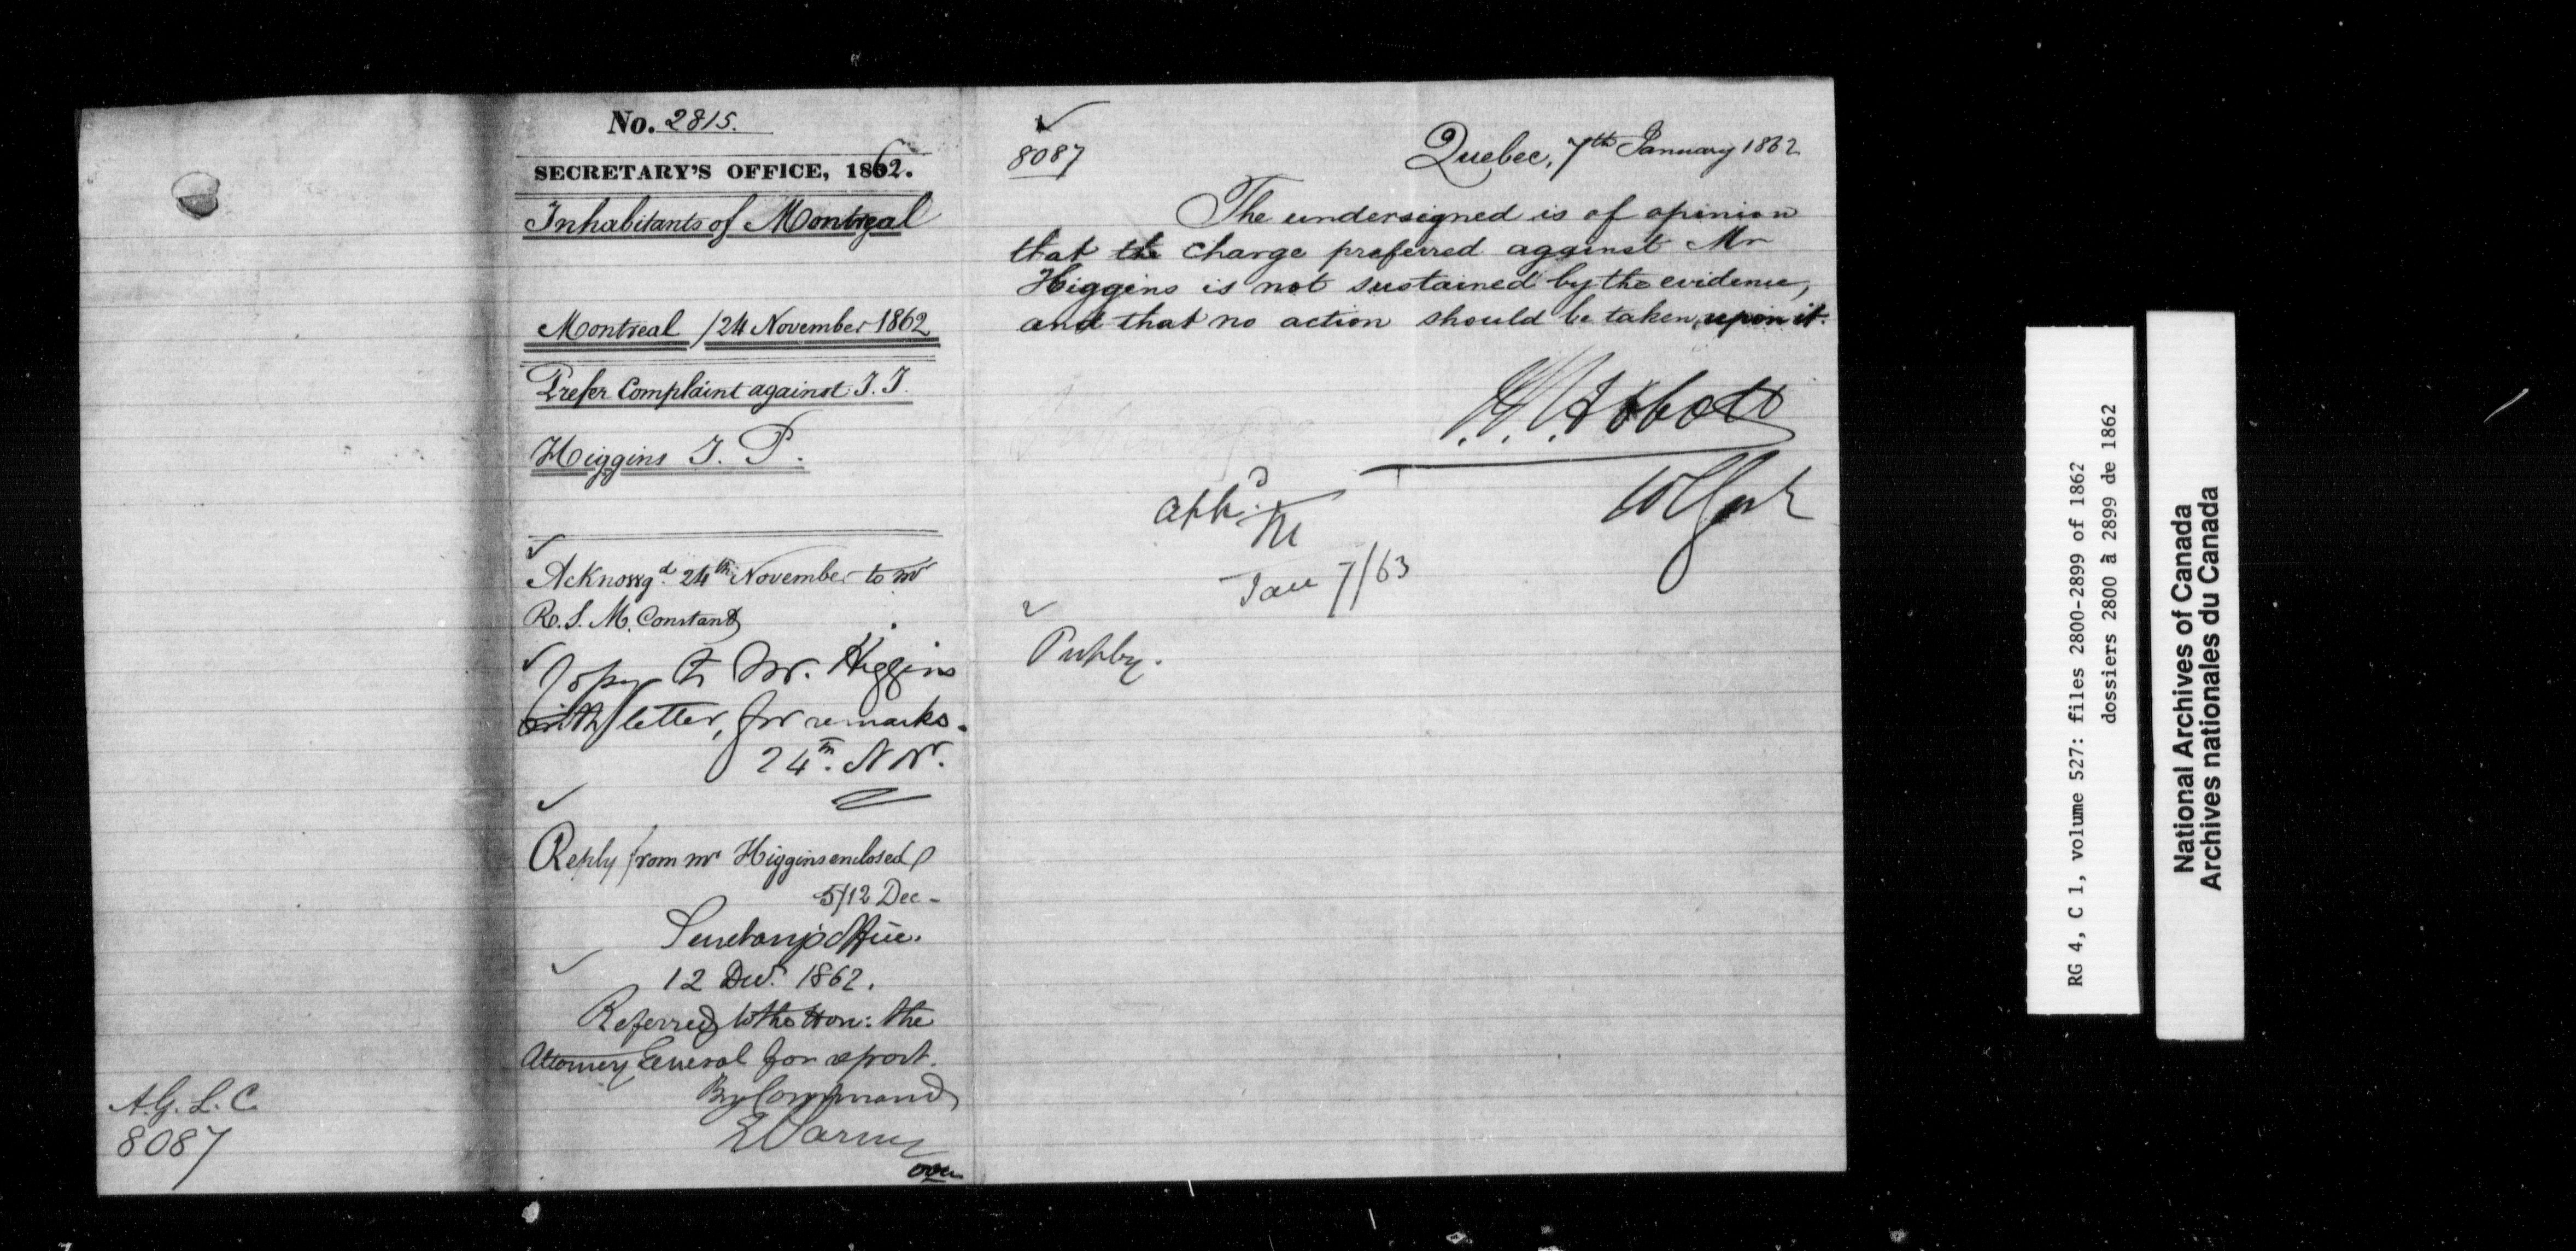 No. 2815.
SECRETARY'S OFFICE, 1862.
Inhabitants of Montreal
Montreal / 24 November 1862
Prefer Complaint against J. J.
Higgins J. P.
Acknowg.d 24th November to Mr
R. S. M. Constant
Copy to Mr. Higgins
with letter, for remarks.
24th. Nov.
Reply from Mr Higgins enclosed
5/12 Dec -
Secretary's Office.
12 Decr. 1862.
Referred to the Hon: the
Attorney General for report.
By Command
E Parent
over
A.G. L. C.
8087
8087
Quebec, 7th January 1862
The undersigned is of opinion
that the charge preferred against Mr
Higgins is not sustained by the evidence,
and that no action should be taken upon it.
J.J.C. Abbott
appd.
M
Jan 7/63
RG 4, C 1, volume 527: files 2800-2899 of 1862
dossiers 2800 à 2899 de 1862
National Archives of Canada
Archives nationales du Canada